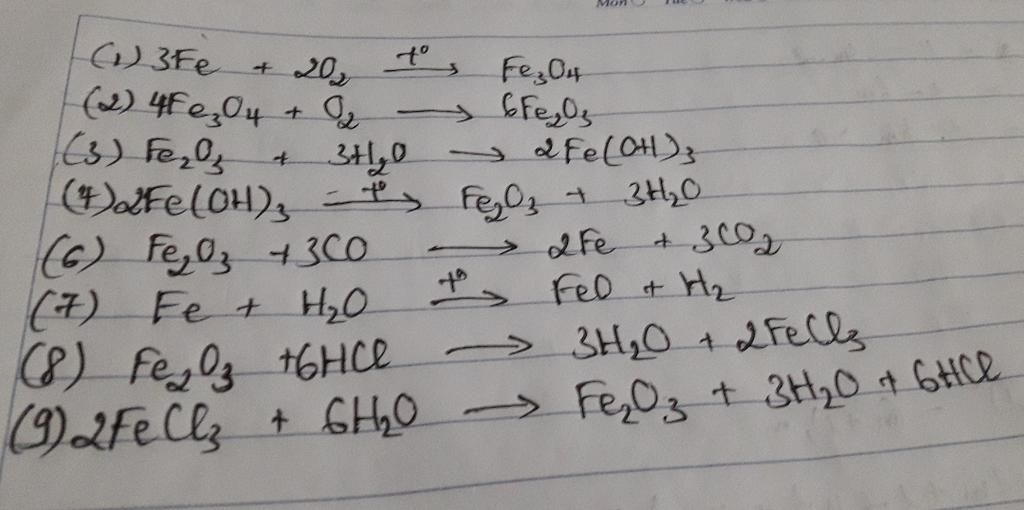 (1) 3Fe + 2O₂ —t°→ Fe₃O₄
(2) 4Fe₃O₄ + O₂ → 6Fe₂O₃
(3) Fe₂O₃ + 3H₂O → 2Fe(OH)₃
(4) 2Fe(OH)₃ —t°→ Fe₂O₃ + 3H₂O
(6) Fe₂O₃ + 3CO → 2Fe + 3CO₂
(7) Fe + H₂O —t°→ FeO + H₂
(8) Fe₂O₃ + 6HCl → 3H₂O + 2FeCl₃
(9) 2FeCl₃ + 6H₂O → Fe₂O₃ + 3H₂O + 6HCl